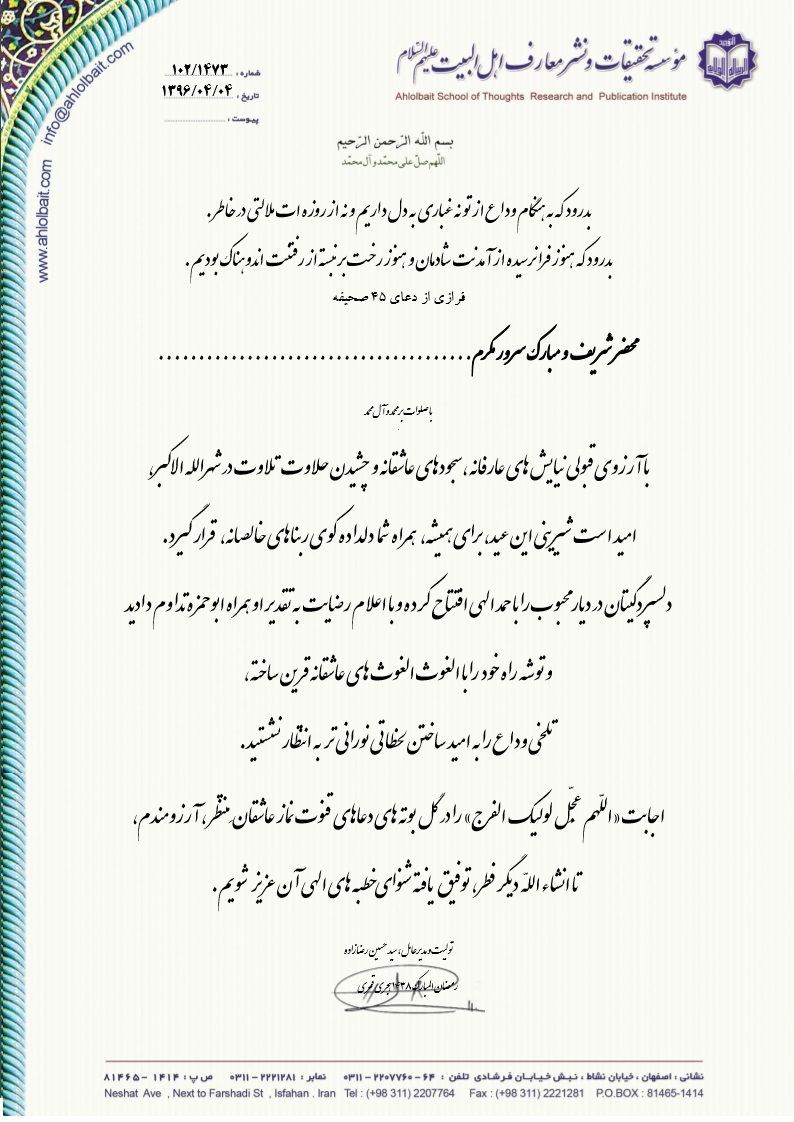 مؤسسه تحقیقات و نشر معارف اهل البیت علیهم السلام
Ahlolbait School of Thoughts Research and Publication Institute
شماره : ۱۰۲/۱۴۷۳
تاریخ : ۱۳۹۶/۰۴/۰۴
پیوست :
www.ahlolbait.com info@ahlolbait.com
بسم الله الرّحمن الرّحیم
اللّهم صلّ علی محمّد و آل محمّد
بدرود که به هنگام وداع از تو نه غباری به دل داریم و نه از روزه ات ملالتی در خاطر.
بدرود که هنوز فرا نرسیده از آمدنت شادمان و هنوز رخت بر نبسته از رفتنت اندوهناک بودیم.
فرازی از دعای ۴۵ صحیفه
محضر شریف و مبارک سرور مکرم.......................................
با صلوات بر محمد و آل محمد
با آرزوی قبولی نیایش های عارفانه، سجودهای عاشقانه و چشیدن حلاوت تلاوت در شهرالله الاکبر،
امید است شیرینی این عید، برای همیشه، همراه شما دلداده کوی ربناهای خالصانه، قرار گیرد.
دلسپردگیتان در دیار محبوب را با حمد الهی افتتاح کرده و با اعلام رضایت به تقدیر او همراه ابوحمزه تداوم دادید
و توشه راه خود را با الغوث الغوث های عاشقانه قرین ساخته،
تلخی وداع را به امید ساختن لحظاتی نورانی تر به انتظار نشستید.
اجابت «اللّهم عجّل لولیک الفرج» را در گل بوته های دعاهای قنوت نماز عاشقان منتظر، آرزومندم،
تا انشاء اللّه دیگر فطر، توفیق یافته شنوای خطبه های الهی آن عزیز شویم.
تولیت و مدیرعامل، سید حسین رضازاده
رمضان المبارک ۱۴۳۸ هجری قمری
نشانی : اصفهان ، خیابان نشاط ، نبش خیابان فرشادی تلفن : ۶۴ - ۲۲۰۷۷۶۰ - ۰۳۱۱ نمابر : ۲۲۲۱۲۸۱ - ۰۳۱۱ ص پ : ۱۴۱۴ - ۸۱۴۶۵
Neshat Ave , Next to Farshadi St , Isfahan . Iran Tel : (+98 311) 2207764 Fax : (+98 311) 2221281 P.O.BOX : 81465-1414